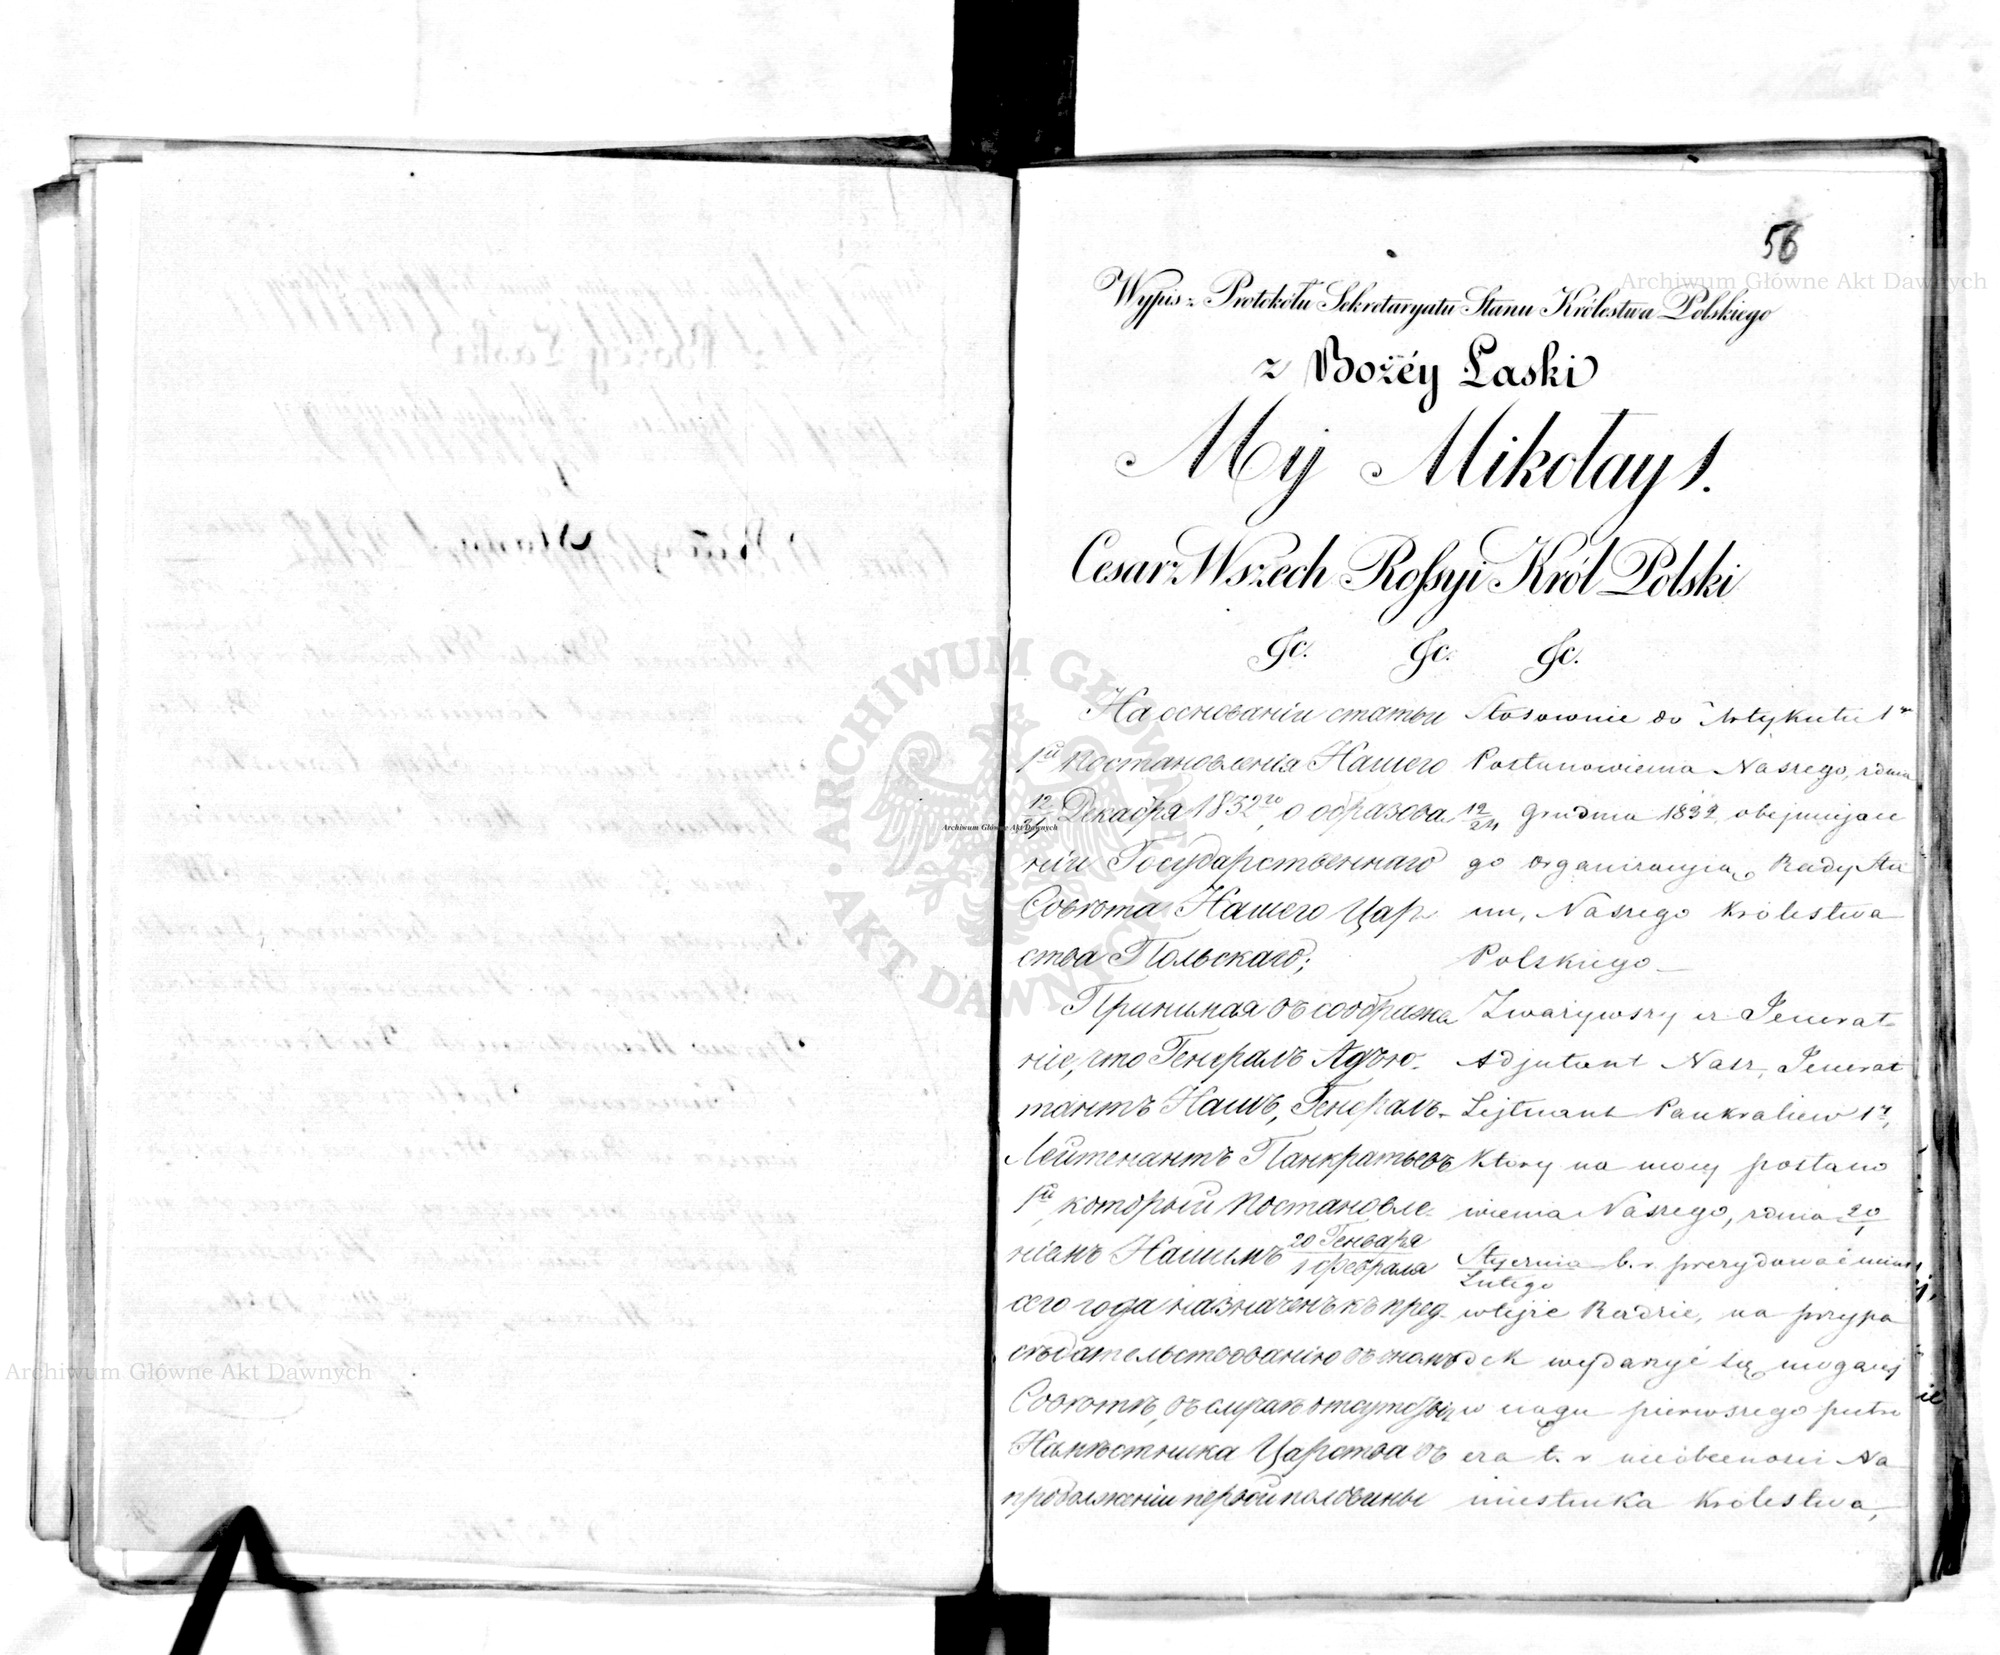 56
Wypis z Protokółu Sekretaryatu Stanu Królestwa Polskiego
z Bożéy Łaski
My Mikołay 1.
Cesarz Wszech Rossyi Król Polski
&c. &c. &c.
На основаніи статьи
1й Постановленія Нашего
12/24 Декабря 1832го, о образова
ніи Государственнаго
Совѣта Нашего Цар
ства Польскаго;
Принимая въ соображе
ніе, что Генералъ Адъю-
тантъ Нашъ, Генералъ-
Лейтенантъ Панкратьевъ
1й, который Постановле-
ніемъ Нашимъ 20 Генваря/1 Февраля
сего года назначенъ къ пред-
сѣдательствованію въ ономъ
Совѣтѣ, въ случаѣ отсутствія
Намѣстника Царства въ
продолженіи первой половины
Stosownie do Artykułu 1go
Postanowienia Naszego, z dnia
12/24 Grudnia 1832, obejmujące
go organizacyią Rady Sta
nu, Naszego Królestwa
Polskiego
Zważywszy iż Jenerał
Adjutant Nasz, Jenerał
Lejtnant Pankratiew 1y,
który na mocy postano
wienia Naszego, z dnia 20/1
Stycznia/Lutego b. r. prezydować miał
w tejże Radzie, na przypa
dek wydarzyć się mogącej
w ciągu pierwszego półro
cza t. r. nieobecności Na
miestnika Królestwa,
Archiwum Główne Akt Dawnych
ARCHIWUM GŁÓWNE AKT DAWNYCH
Archiwum Główne Akt Dawnych
Archiwum Główne Akt Dawnych